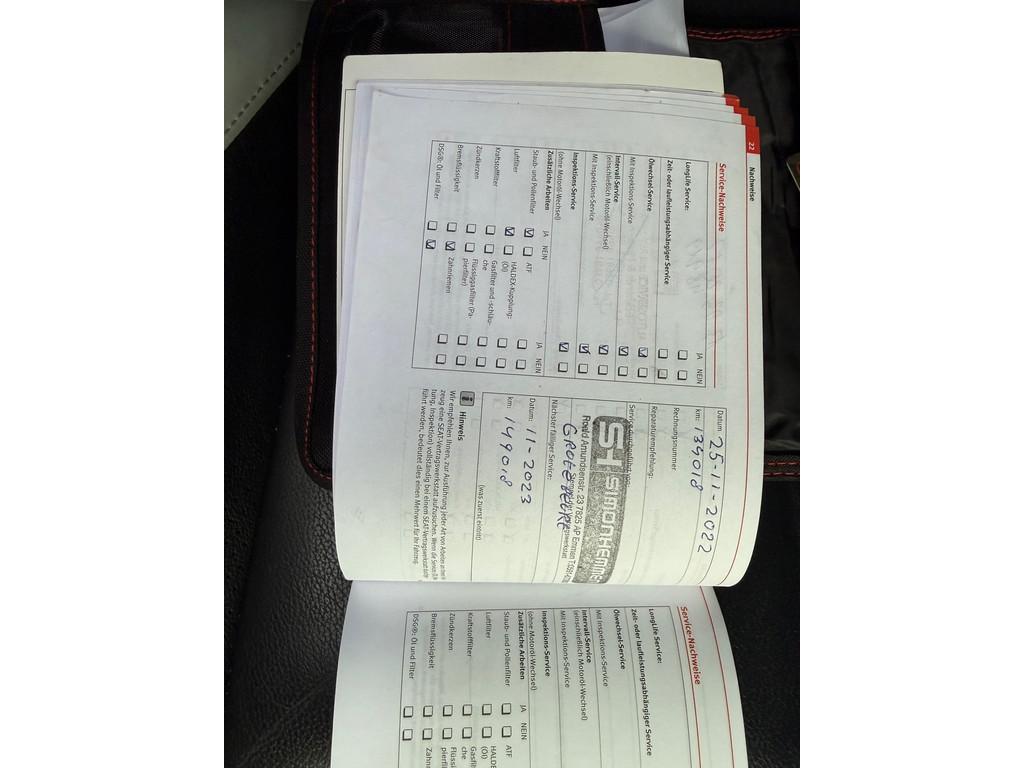 22
Nachweise
Service-Nachweise
JA NEIN
LongLife Service:
Zeit- oder laufleistungsabhängiger Service
Ölwechsel-Service
Mit Inspektions-Service
Intervall-Service
(einschließlich Motoröl-Wechsel)
Mit Inspektions-Service
Inspektions-Service
(ohne Motoröl-Wechsel)
Zusätzliche Arbeiten JA NEIN JA NEIN
Staub- und Pollenfilter ATF
Luftfilter HALDEX-Kupplung:
(Öl)
Kraftstofffilter Gasfilter und -schläu-
che
Zündkerzen Flüssiggasfilter (Pa-
pierfilter)
Bremsflüssigkeit Zahnriemen
DSG®: Öl und Filter
Datum: 25-11-2022
km: 134018
Rechnungsnummer:
Reparaturempfehlung:
Service durchgeführt von:
Roald Amundsenstr. 23 7825 AP Emmen
Stempel der Vertragswerkstatt
GROTE BEURT
Nächster fälliger Service:
Datum: 11-2023
km: 149018
(was zuerst eintritt)
Hinweis
Wir empfehlen Ihnen, zur Ausführung jeder Art von Arbeiten
zeug eine SEAT-Vertragswerkstatt aufzusuchen. Wenn die Service
tung, Inspektion) vollständig bei einem SEAT-Vertragswerkstatt
führt werden, bedeutet dies einen Mehrwert für Ihr Fahrzeug.
Service-Nachweise
LongLife Service:
Zeit- oder laufleistungsabhängiger Service
Ölwechsel-Service
Mit Inspektions-Service
Intervall-Service
(einschließlich Motoröl-Wechsel)
Mit Inspektions-Service
Inspektions-Service
(ohne Motoröl-Wechsel)
Zusätzliche Arbeiten JA NEIN
Staub- und Pollenfilter ATF
Luftfilter HALDE
(Öl)
Kraftstofffilter Gasfil
che
Zündkerzen Flüssi
pierfil
Bremsflüssigkeit Zahn
DSG®: Öl und Filter